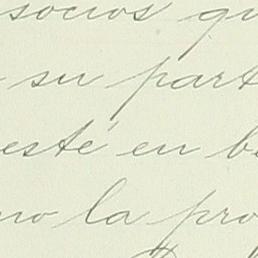 socios qu
su part
esté en b
no la pro